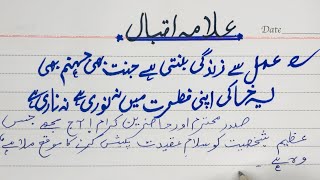 علامہ اقبال
Date
عمل سے زندگی بنتی ہے جنت بھی جہنم بھی
یہ خاکی اپنی فطرت میں نہ نوری ہے نہ ناری ہے
صدر محترم اور حاضرین کرام! آج مجھے جس
عظیم شخصیت کو سلام عقیدت پیش کرنے کا موقع ملا ہے،
وہ ہے